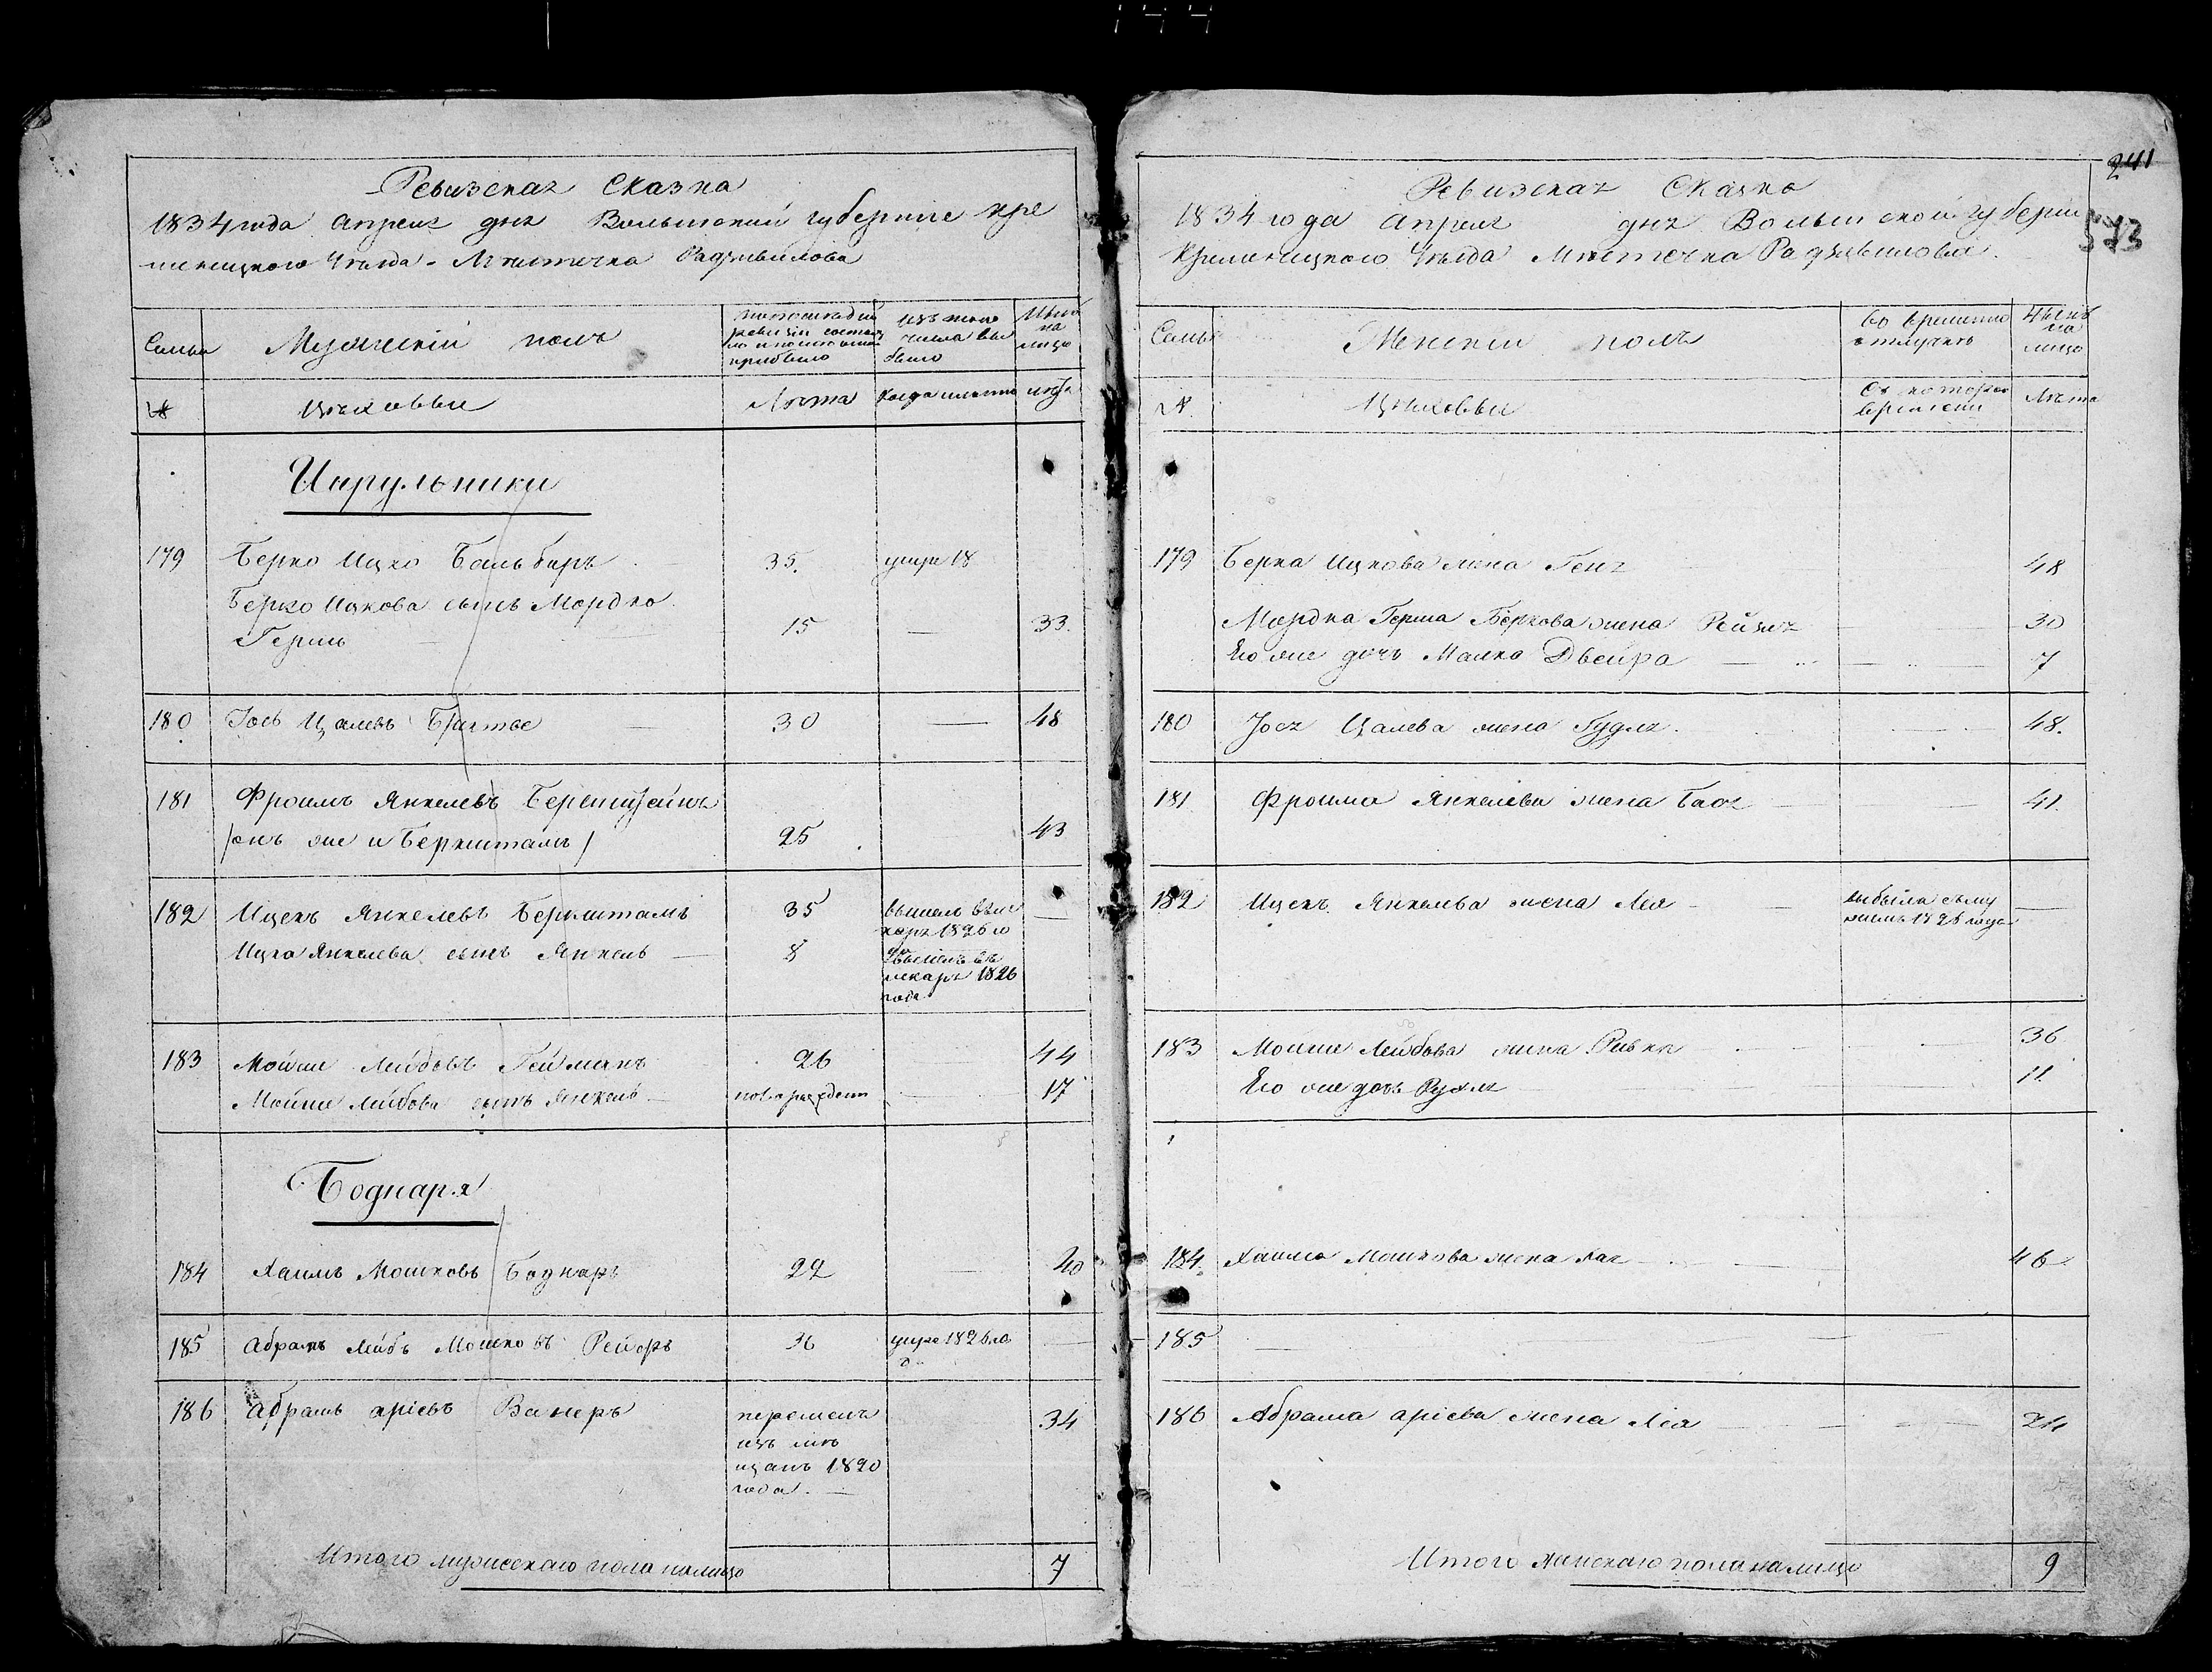 144
Ревизская Сказка
1834 года Апреля дня Волынской губернiи Кре
менецкого Уѣзда Мѣстечка Радзивилова
Семьи
Мужескiй полъ
изъ того числа выбыло
Нынѣ на лицо
№
Цѣховыи
Лѣта
Когда именно
Лѣта
Цирульники
179 Берко Ицко Бальберъ 35. умре 18
Берко Ицкова сынъ Мордко
Герш 15 — 33.
180 Iось Цалевъ 30 — 48
181 Фроимъ Янкелевъ Беренштейнъ
/онъ же и Бернштамъ/ 25 43
182 Ицекъ Янкелевъ Бернштамъ 35 —
Ицка Янкелева сынъ Янкель — 8
лекаря 1826
года
183 Мойше Лейбовъ Гейманъ 26 44
Мойши Лейбова сынъ Янкель — новорожденъ — 17
Боднаря
184 Хаимъ Мошковъ Боднаръ 22 — 40
185 Абрамъ Лейбъ Мошковъ 36 умре 1826 го
да —
186 Абрамъ Арiевъ Ванеръ 34
изъ мѣ
щанъ 1820
года. —
Итого мужескаго пола налицо 7
241
573
Ревизская Сказка
1834 года Апреля дня Волынской губерни
Кременецкого Уѣзда Мѣстечка Радзивилова.
Семьи
Женскiй полъ
Во временной отлучкѣ
Нынѣ на лицо
№.
Цѣховыи
Съ которого времени
Лѣта
179 Берка Ицкова жена Геня 48
Мордка Герша Беркова жена Рейзя 30
Его же дочь Малка Двейра 7
180 Iося Цалева жена Гудля. 48.
181 Фроима Янкелева жена Бася 41.
182 Ицекъ Янкелева жена Лея —
183 Мойши Лейбова жена Ривка 36
Его же дочь Рухля 11.
184. Хаима Мошкова жена Хая 46.
185 —
186 Абрама Арiева жена Лея 24
Итого женскаго пола налицо 9